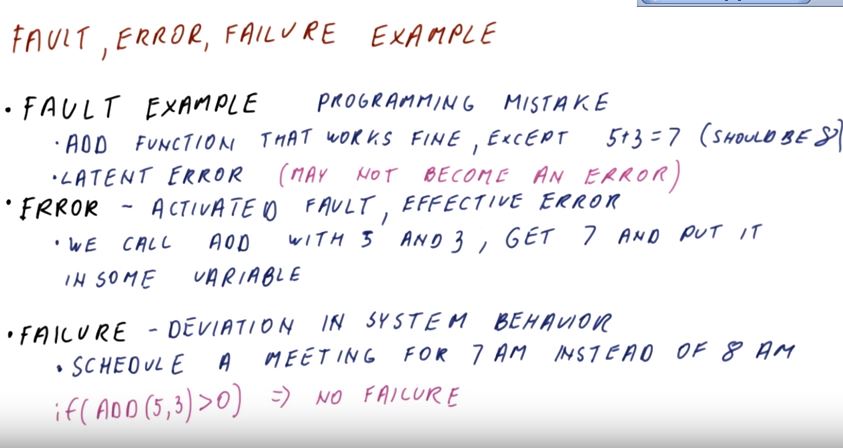 FAULT, ERROR, FAILURE EXAMPLE
• FAULT EXAMPLE PROGRAMMING MISTAKE
• ADD FUNCTION THAT WORKS FINE, EXCEPT 5+3=7 (SHOULD BE 8)
• LATENT ERROR (MAY NOT BECOME AN ERROR)
• ERROR - ACTIVATED FAULT, EFFECTIVE ERROR
• WE CALL ADD WITH 5 AND 3, GET 7 AND PUT IT
IN SOME VARIABLE
• FAILURE - DEVIATION IN SYSTEM BEHAVIOR
• SCHEDULE A MEETING FOR 7 AM INSTEAD OF 8 AM
if(ADD(5,3)>0) => NO FAILURE